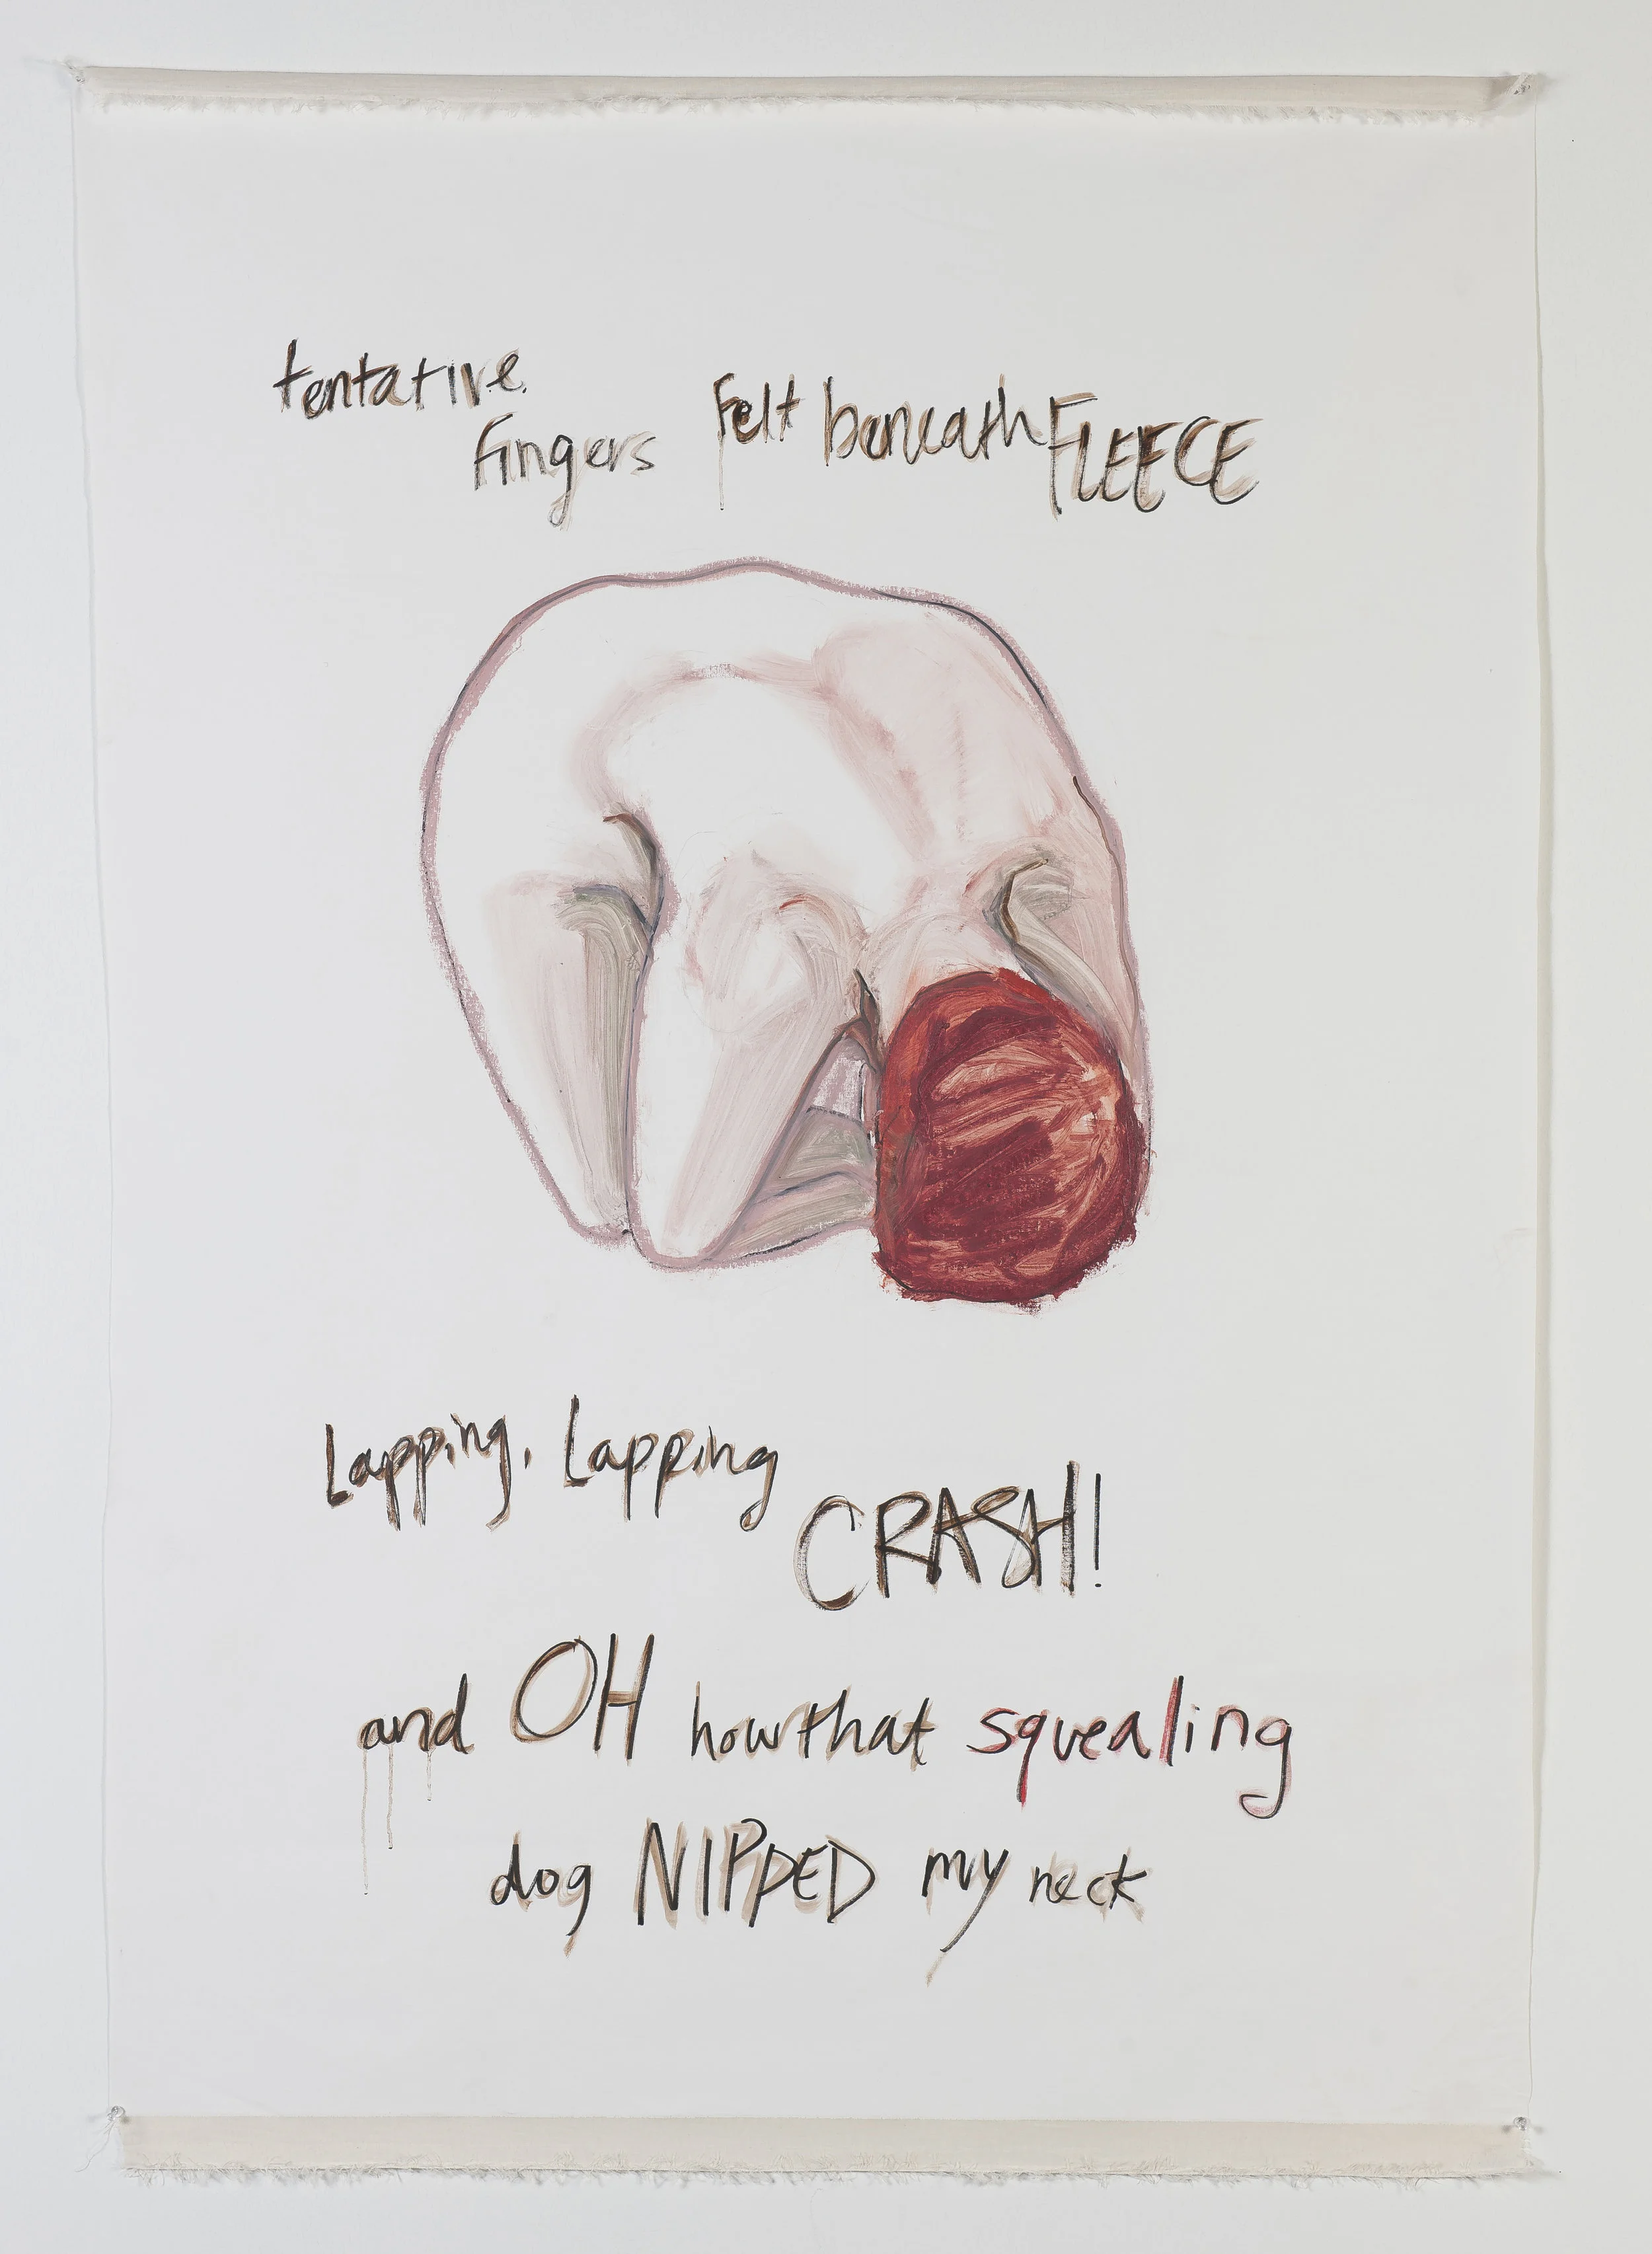 tentative
fingers felt beneath FLEECE
Lapping, Lapping
CRASH!
and OH how that squealing
dog NIPPED my neck